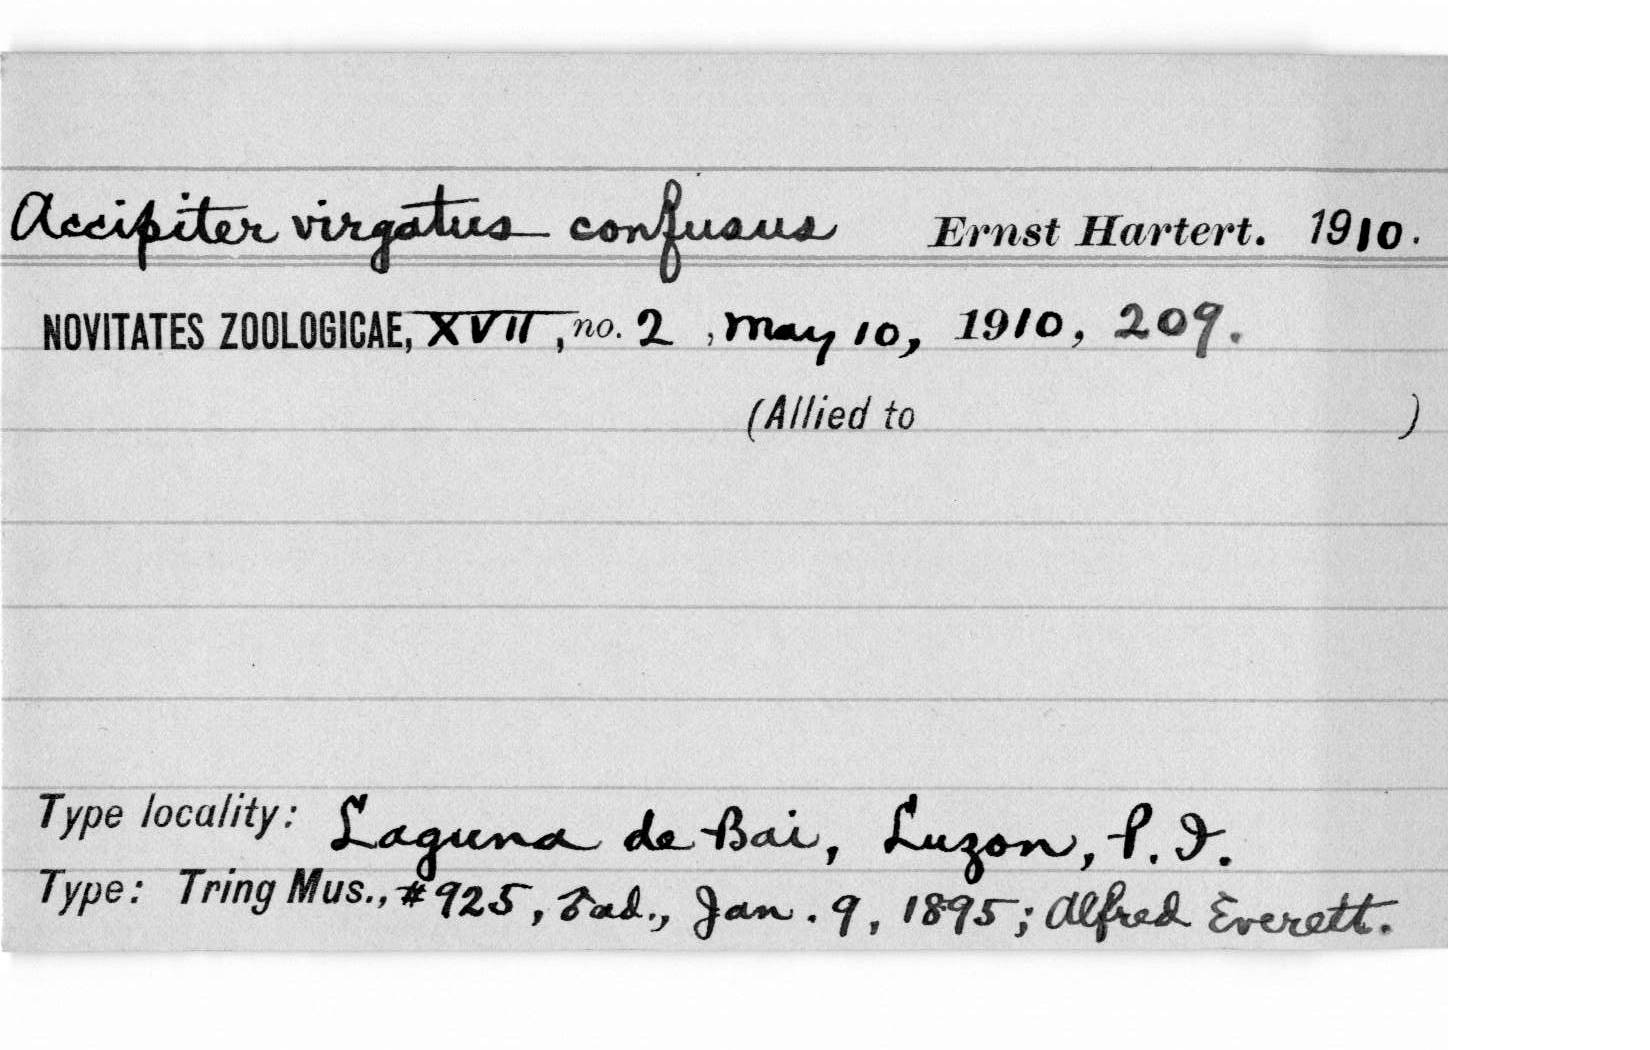 Accipiter virgatus confusus Ernst Hartert. 1910.
NOVITATES ZOOLOGICAE, XVII, no. 2, May 10, 1910, 209.
(Allied to )
Type locality: Laguna de Bai, Luzon, P. I.
Type: Tring Mus., #925, ♂ad., Jan. 9, 1895; Alfred Everett.